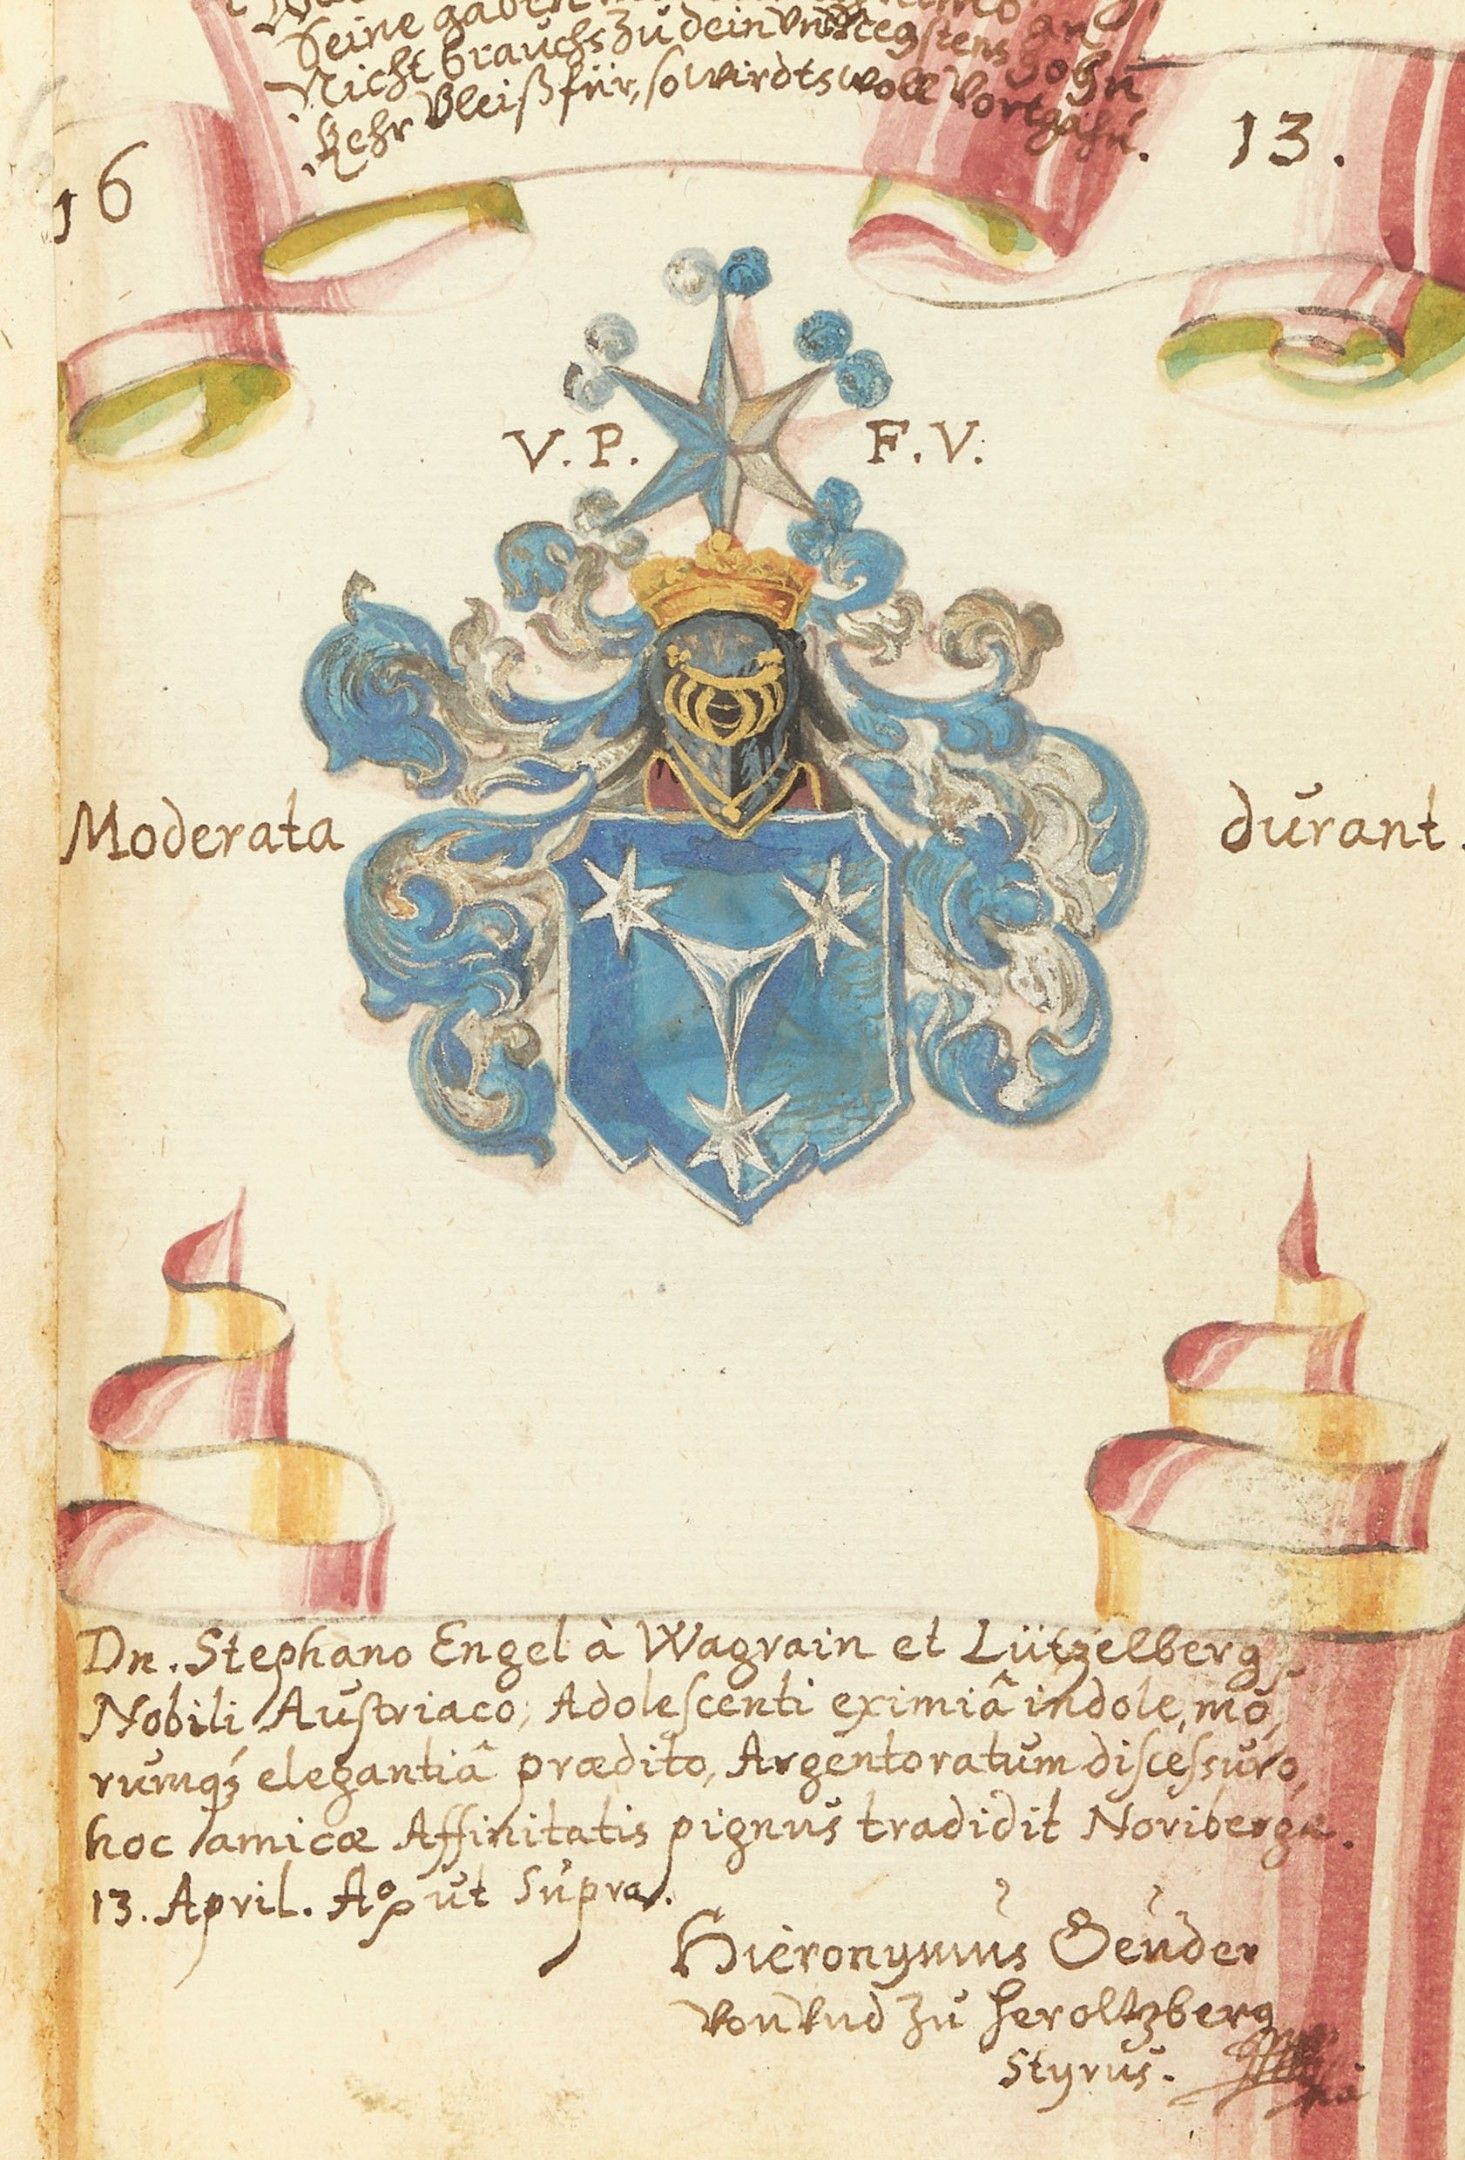 Seine gaben
Nicht brauchs zu dein
Kehr Vleiß für, so wirdts woll Vortgahn.
16 13.
V. P. F. V.
Moderata durant.
Dn. Stephano Engel à Wagrain et Lützelberg
Nobili Austriaco, Adolescenti eximiâ indole, mo,
rumq́ʒ elegantiâ prædito, Argentoratum discessuro,
hoc amicæ Affinitatis pignus tradidit Noribergæ.
13. April. Aº ut Supra.
Hieronymus Geuder
Von Vnd Zu Heroltzberg
Styrus.